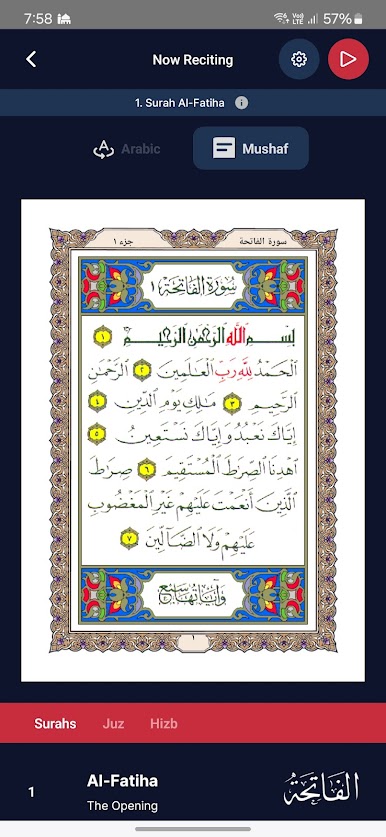 7:58
57%
Now Reciting
1. Surah Al-Fatiha
Arabic
Mushaf
سورة الفاتحة جزء ١
سُورَةُ الفَاتِحَةِ ١
بِسْمِ اللَّهِ الرَّحْمَٰنِ الرَّحِيمِ ١
الْحَمْدُ لِلَّهِ رَبِّ الْعَالَمِينَ ٢ الرَّحْمَٰنِ
الرَّحِيمِ ٣ مَالِكِ يَوْمِ الدِّينِ ٤
إِيَّاكَ نَعْبُدُ وَإِيَّاكَ نَسْتَعِينُ ٥
اهْدِنَا الصِّرَاطَ الْمُسْتَقِيمَ ٦ صِرَاطَ
الَّذِينَ أَنْعَمْتَ عَلَيْهِمْ غَيْرِ الْمَغْضُوبِ
عَلَيْهِمْ وَلَا الضَّالِّينَ ٧
وَآيَاتُهَا سَبْعٌ
١
Surahs Juz Hizb
1 Al-Fatiha الْفَاتِحَةُ
The Opening